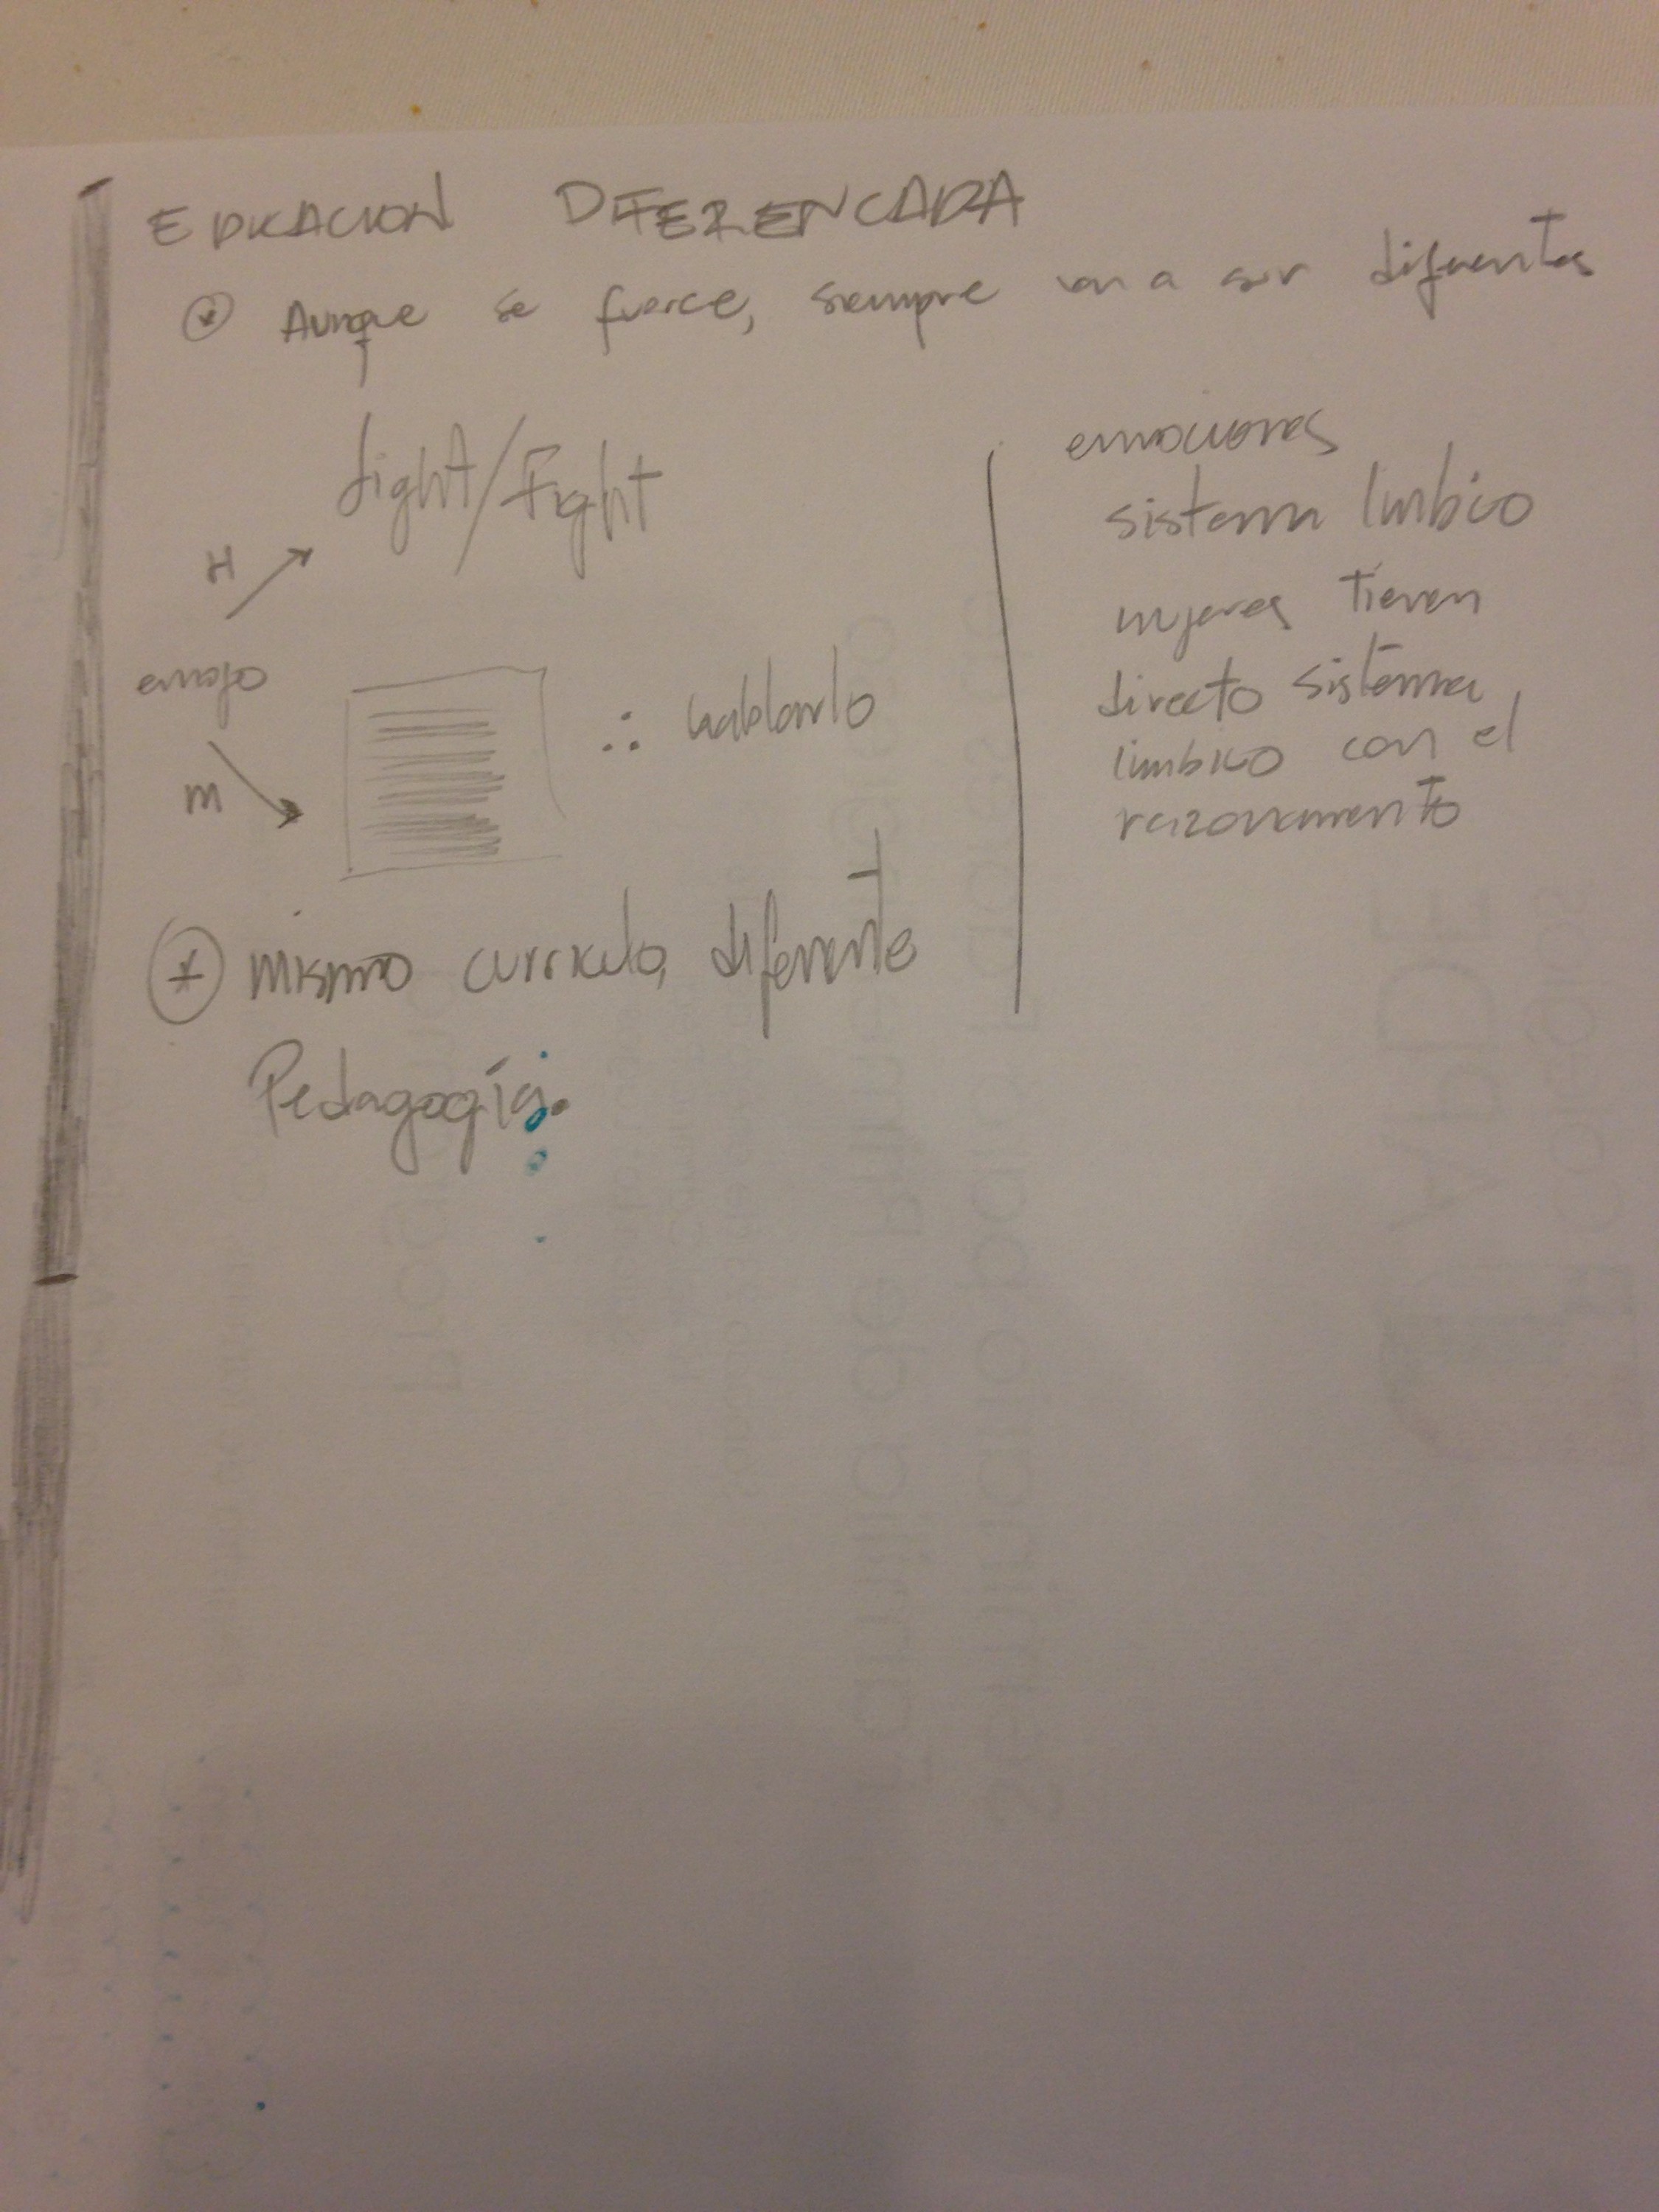 EDUCACION DIFERENCADA
* Aunque se fuerce, siempre van a ser diferentes
fight/Fight
H
enojo
M
∴ hablarlo
* mismo curriculo, diferente
Pedagogía.
emociones
sistema limbico
mujeres tienen
directo sistema
limbico con el
razonamiento